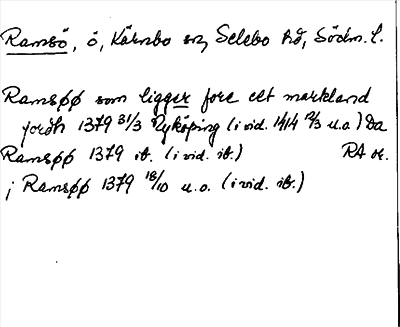 Ramsö, ö, Kärnbo sn, Selebo hd, Södm. l.
Ramsøø som ligger fore eet markland
jordh 1379 31/3 Nyköping (i vid. 1414 2/3 u.o.) Da
Ramsøø 1379 ib. (i vid. ib.) RA or.
j Ramsøø 1379 18/10 u.o. (i vid. ib.)